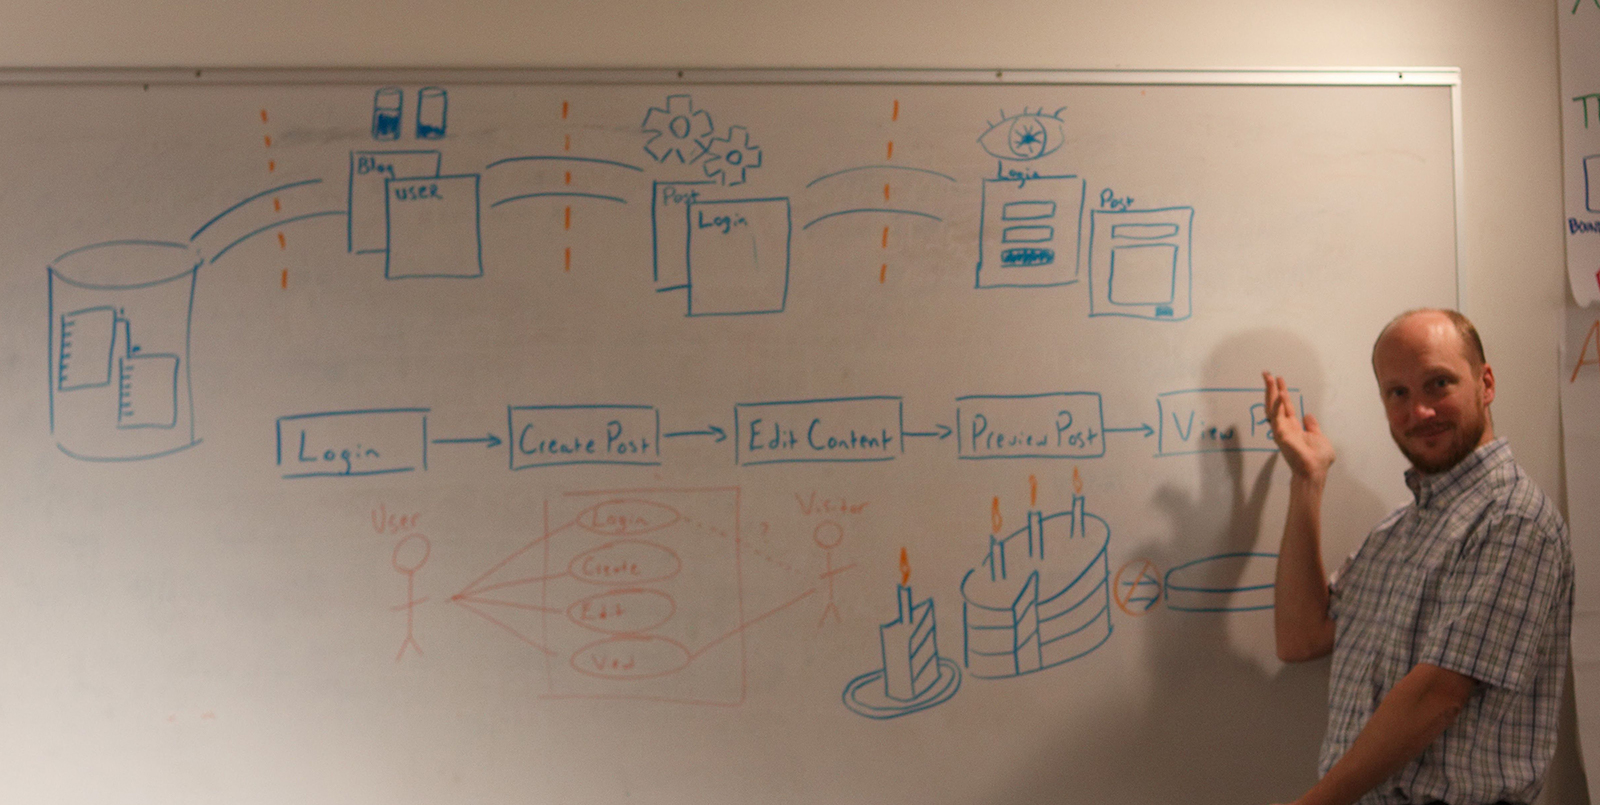 Blog
USER
Post
Login
Login
Post
Login
Create Post
Edit Content
Preview Post
View Po
User
Visitor
Login
?
Create
Edit
View
A
T
BOUN
A